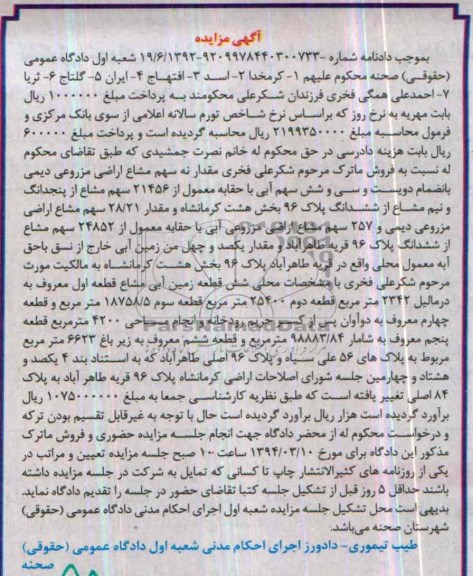 آگهی مزایده
بموجب دادنامه شماره -۹۲۰۹۹۷۸۴۴۰۳۰۰۷۳۳-۱۹/۶/۱۳۹۲ شعبه اول دادگاه عمومی
(حقوقی) صحنه محکوم علیهم ۱- کرمخدا ۲- اسد ۳- افتهاج ۴- ایران ۵- گلتاج ۶- ثریا
۷- احمدعلی همگی فخری فرزندان شکرعلی محکومند به پرداخت مبلغ ۱۰۰۰۰۰۰ ریال
بابت مهریه به نرخ روز که براساس نرخ شاخص تورم سالانه اعلامی از سوی بانک مرکزی و
فرمول محاسبه مبلغ ۲۱۹۹۳۵۰۰۰۰ ریال محاسبه گردیده است و پرداخت مبلغ ۶۰۰۰۰۰
ریال بابت هزینه دادرسی در حق محکوم له خانم نصرت جمشیدی که طبق تقاضای محکوم
له نسبت به فروش ماترک مرحوم شکرعلی فخری مقدار نه سهم مشاع اراضی مزروعی دیمی
بانضمام دویست و سی و شش سهم آبی با حقابه معمول از ۲۱۴۵۶ سهم مشاع از پنجدانگ
و نیم مشاع از ششدانگ پلاک ۹۶ بخش هشت کرمانشاه و مقدار ۲۸/۲۱ سهم مشاع اراضی
مزروعی دیمی و ۲۵۷ سهم مشاع اراضی مزروعی آبی با حقابه معمول از ۲۴۸۵۲ سهم مشاع
از ششدانگ پلاک ۹۶ قریه طاهرآباد و مقدار یکصد و چهل من زمین آبی خارج از نسق باحق
آبه معمول محلی واقع در قریه طاهرآباد پلاک ۹۶ بخش هشت کرمانشاه به مالکیت مورث
مرحوم شکرعلی فخری با مشخصات محلی شش قطعه زمین آبی مشاع قطعه اول معروف به
درمالیل ۲۳۴۲ متر مربع قطعه دوم ۲۵۴۰۰ متر مربع قطعه سوم ۱۸۷۵۸/۵ متر مربع و قطعه
چهارم معروف به دوآوان پس از کسر حریم رودخانه و انجام مساحی ۴۲۰۰ مترمربع قطعه
پنجم معروف به شامار ۹۸۸۸۳/۸۴ مترمربع و قطعه ششم معروف به زیر باغ ۶۶۲۳ متر مربع
مربوط به پلاک های ۵۶ علی سیاه و پلاک ۹۶ اصلی طاهرآباد که به استناد بند ۴ یکصد و
هشتاد و چهارمین جلسه شورای اصلاحات اراضی کرمانشاه پلاک ۹۶ قریه طاهر آباد به پلاک
۸۴ اصلی تغییر یافته است که طبق نظریه کارشناسی جمعا به مبلغ ۱۰۷۵۰۰۰۰۰۰ ریال
برآورد گردیده است هزار ریال برآورد گردیده است حال با توجه به غیرقابل تقسیم بودن ترکه
و درخواست محکوم له از محضر دادگاه جهت انجام جلسه مزایده حضوری و فروش ماترک
مذکور این دادگاه برای مورخ ۱۳۹۴/۰۳/۱۰ ساعت ۱۰ صبح جلسه مزایده تعیین و مراتب در
یکی از روزنامه های کثیرالانتشار چاپ تا کسانی که تمایل به شرکت در جلسه مزایده داشته
باشند حداقل ۵ روز قبل از تشکیل جلسه کتبا تقاضای حضور در جلسه را تقدیم دادگاه نماید.
بدیهی است محل تشکیل جلسه مزایده شعبه اول اجرای احکام مدنی دادگاه عمومی (حقوقی)
شهرستان صحنه می‌باشد.
طیب تیموری- دادورز اجرای احکام مدنی شعبه اول دادگاه عمومی (حقوقی)
صحنه